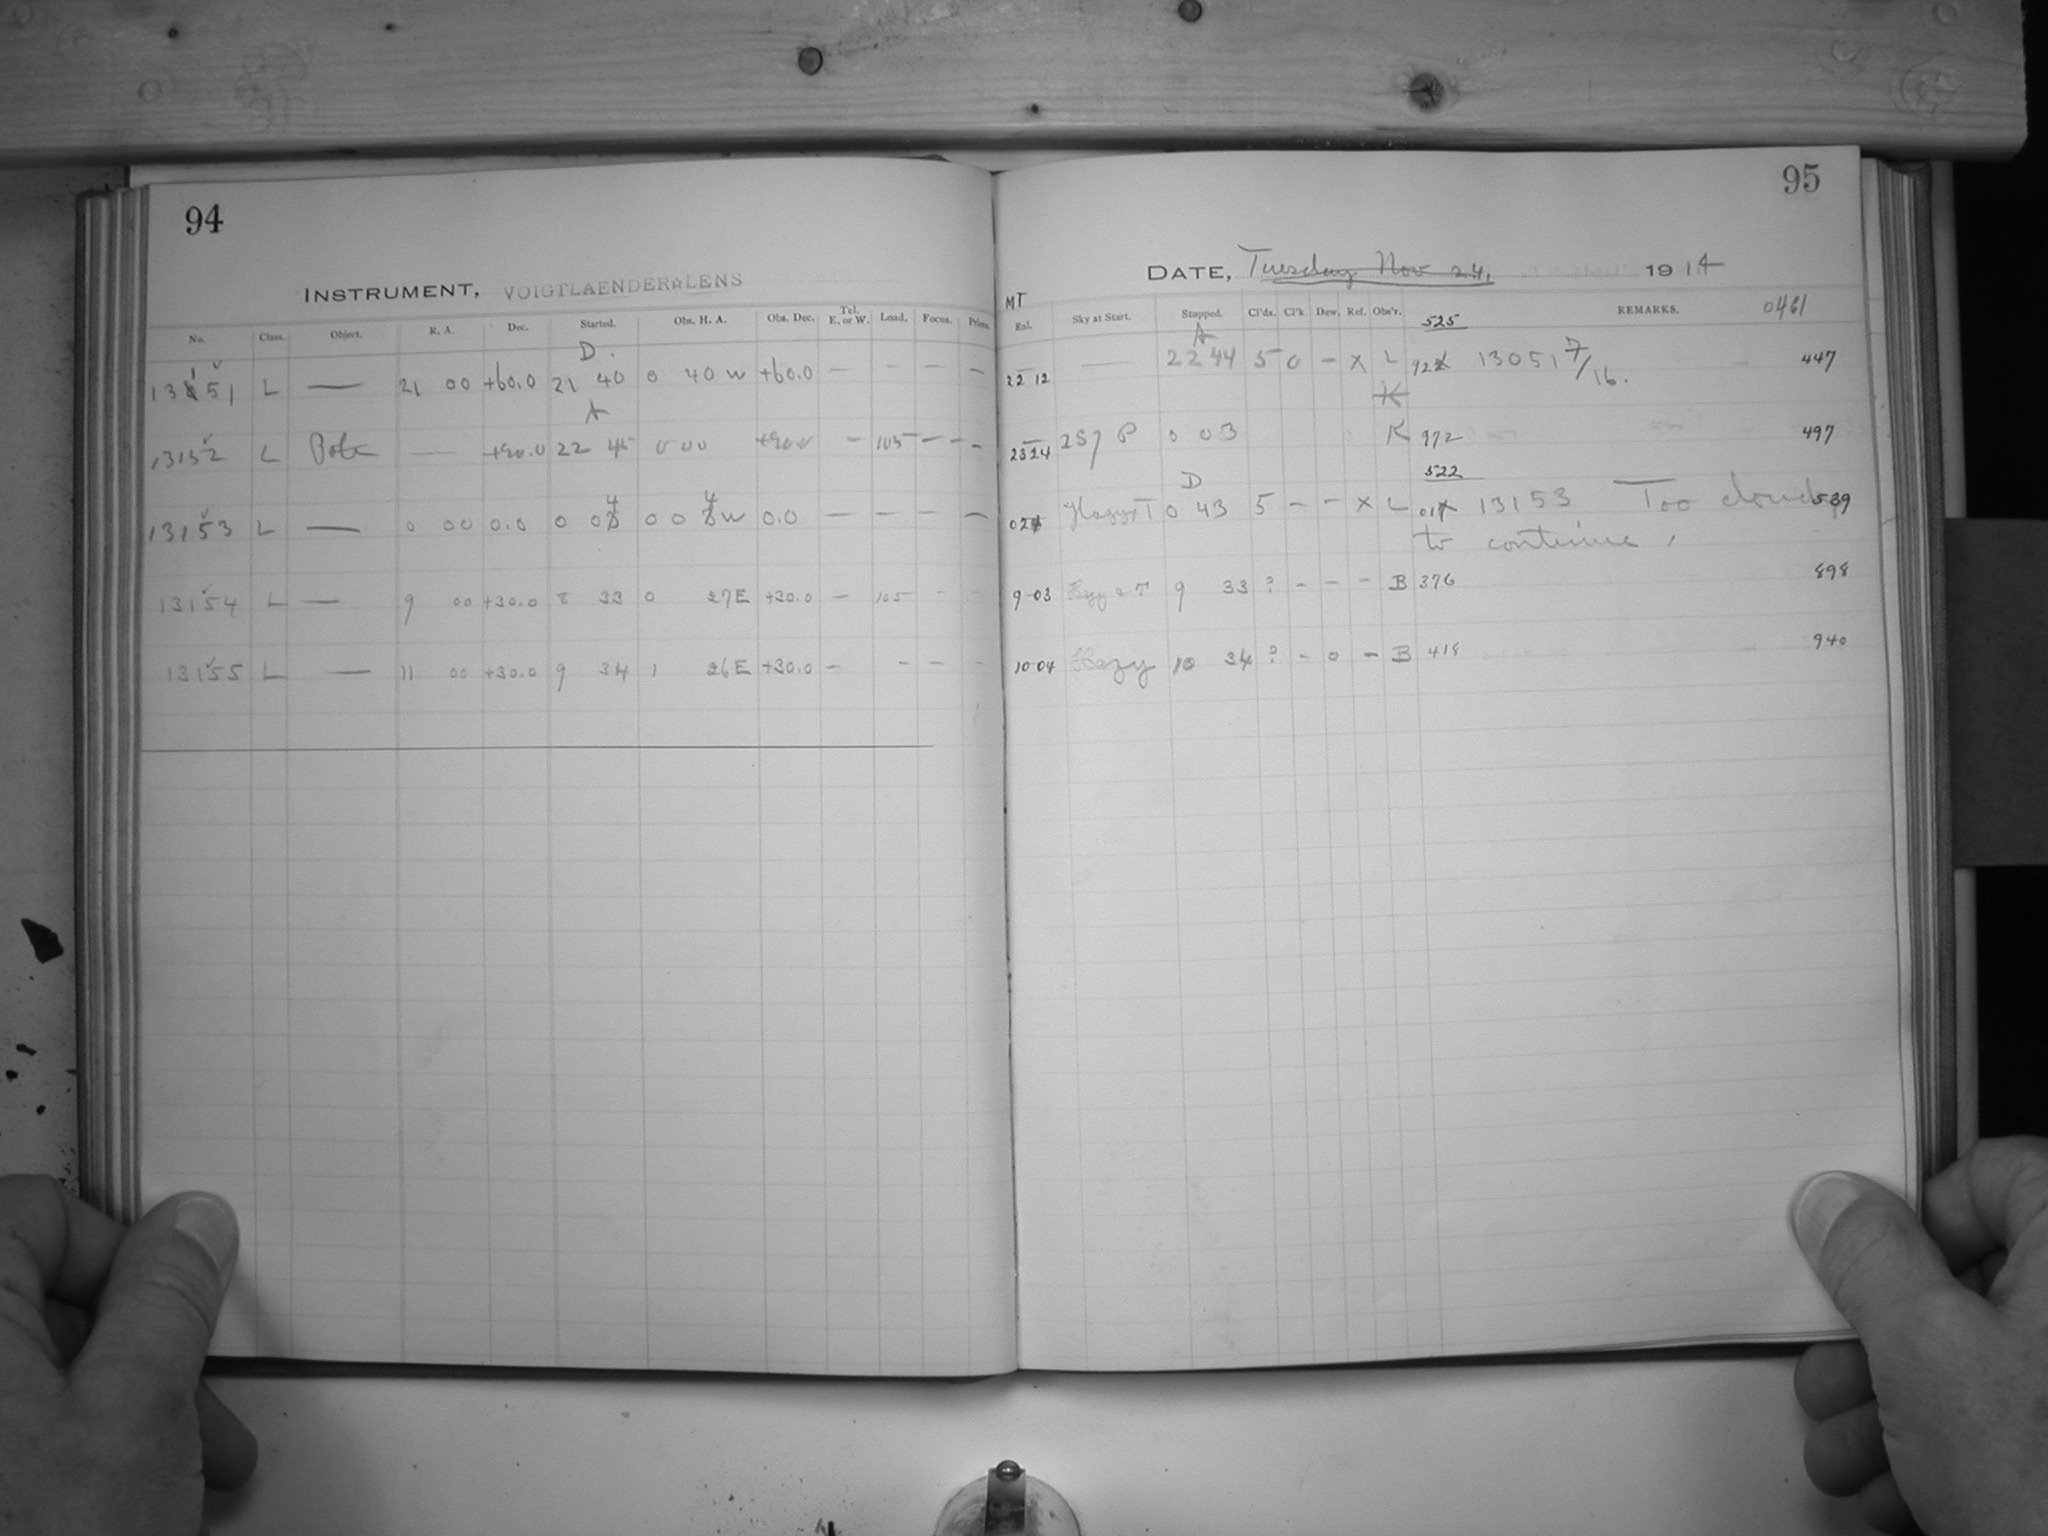 94
INSTRUMENT, VOIGTLAENDER LENS
No. Class. Object. R. A. Dec. Started. Obs. H. A. Obs. Dec. Tel. E. or W. Load. Focus. Prism.
D.
13151 L — 21 00 +60.0 21 40 0 40 W +60.0 — — — —
A
13152 L Pole — +90.0 22 45 0 00 +90.0 — 105 — — —
13153 L — 0 00 0.0 0 04 0 04 W 0.0 — — — —
13154 L — 9 00 +30.0 8 33 0 27 E +30.0 — 105 - -
13155 L — 11 00 +30.0 9 34 1 26 E +30.0 — - - -
95
DATE, Tuesday Nov 24, 1914
MT
Exl. Sky at Start. Stopped. Cl'ds. Cl'k Dew. Ref. Obs'r. REMARKS. 0461
525
A
22 12 — 22 44 5 0 — X L 13051 7/16. 447
K
23 24 257 P 0 03 K 972 497
522
D
Hazy + T 0 43 5 — — X L 13153 Too cloudy 539
to continue,
9-03 9 33 ? - - - B 376 898
10 04 Hazy 10 34 ? - 0 - B 418 940